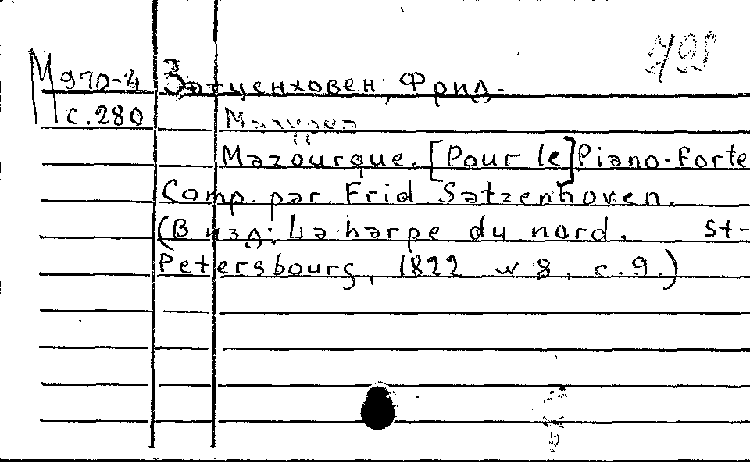 М 970-4 Затценховен, Фрид.
с. 280 Мазурка
Mazourque. [Pour le] Piano-Forte
Comp. par Frid Satzenhoven.
(В изд: La harpe du nord. St-
Petersbourg, 1822 № 8, с. 9.)